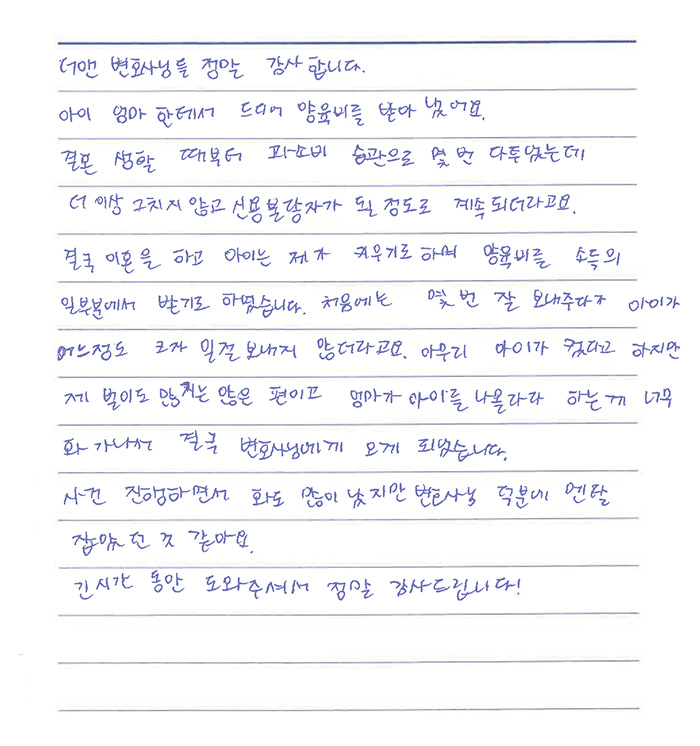 더앤 변호사님들 정말 감사합니다.
아이 엄마 한테서 드디어 양육비를 받아 냈어요.
결혼 생활 때부터 과소비 습관으로 몇 번 다투었는데
더 이상 고치지 않고 신용불량자가 될 정도로 계속 되더라고요.
결국 이혼을 하고 아이는 제가 키우기로 하며 양육비를 소득의
일부분에서 받기로 하였습니다. 처음에는 몇 번 잘 보내주다가 아이가
어느정도 크자 일절 보내지 않더라고요. 아무리 아이가 컸다고 하지만
제 벌이도 많지는 않은 편이고 엄마가 아이를 나몰라라 하는게 너무
화가나서 결국 변호사님에게 오게 되었습니다.
사건 진행하면서 화도 많이 났지만 변호사님 덕분에 멘탈
잡았던 것 같아요.
긴시간 동안 도와주셔서 정말 감사드립니다!